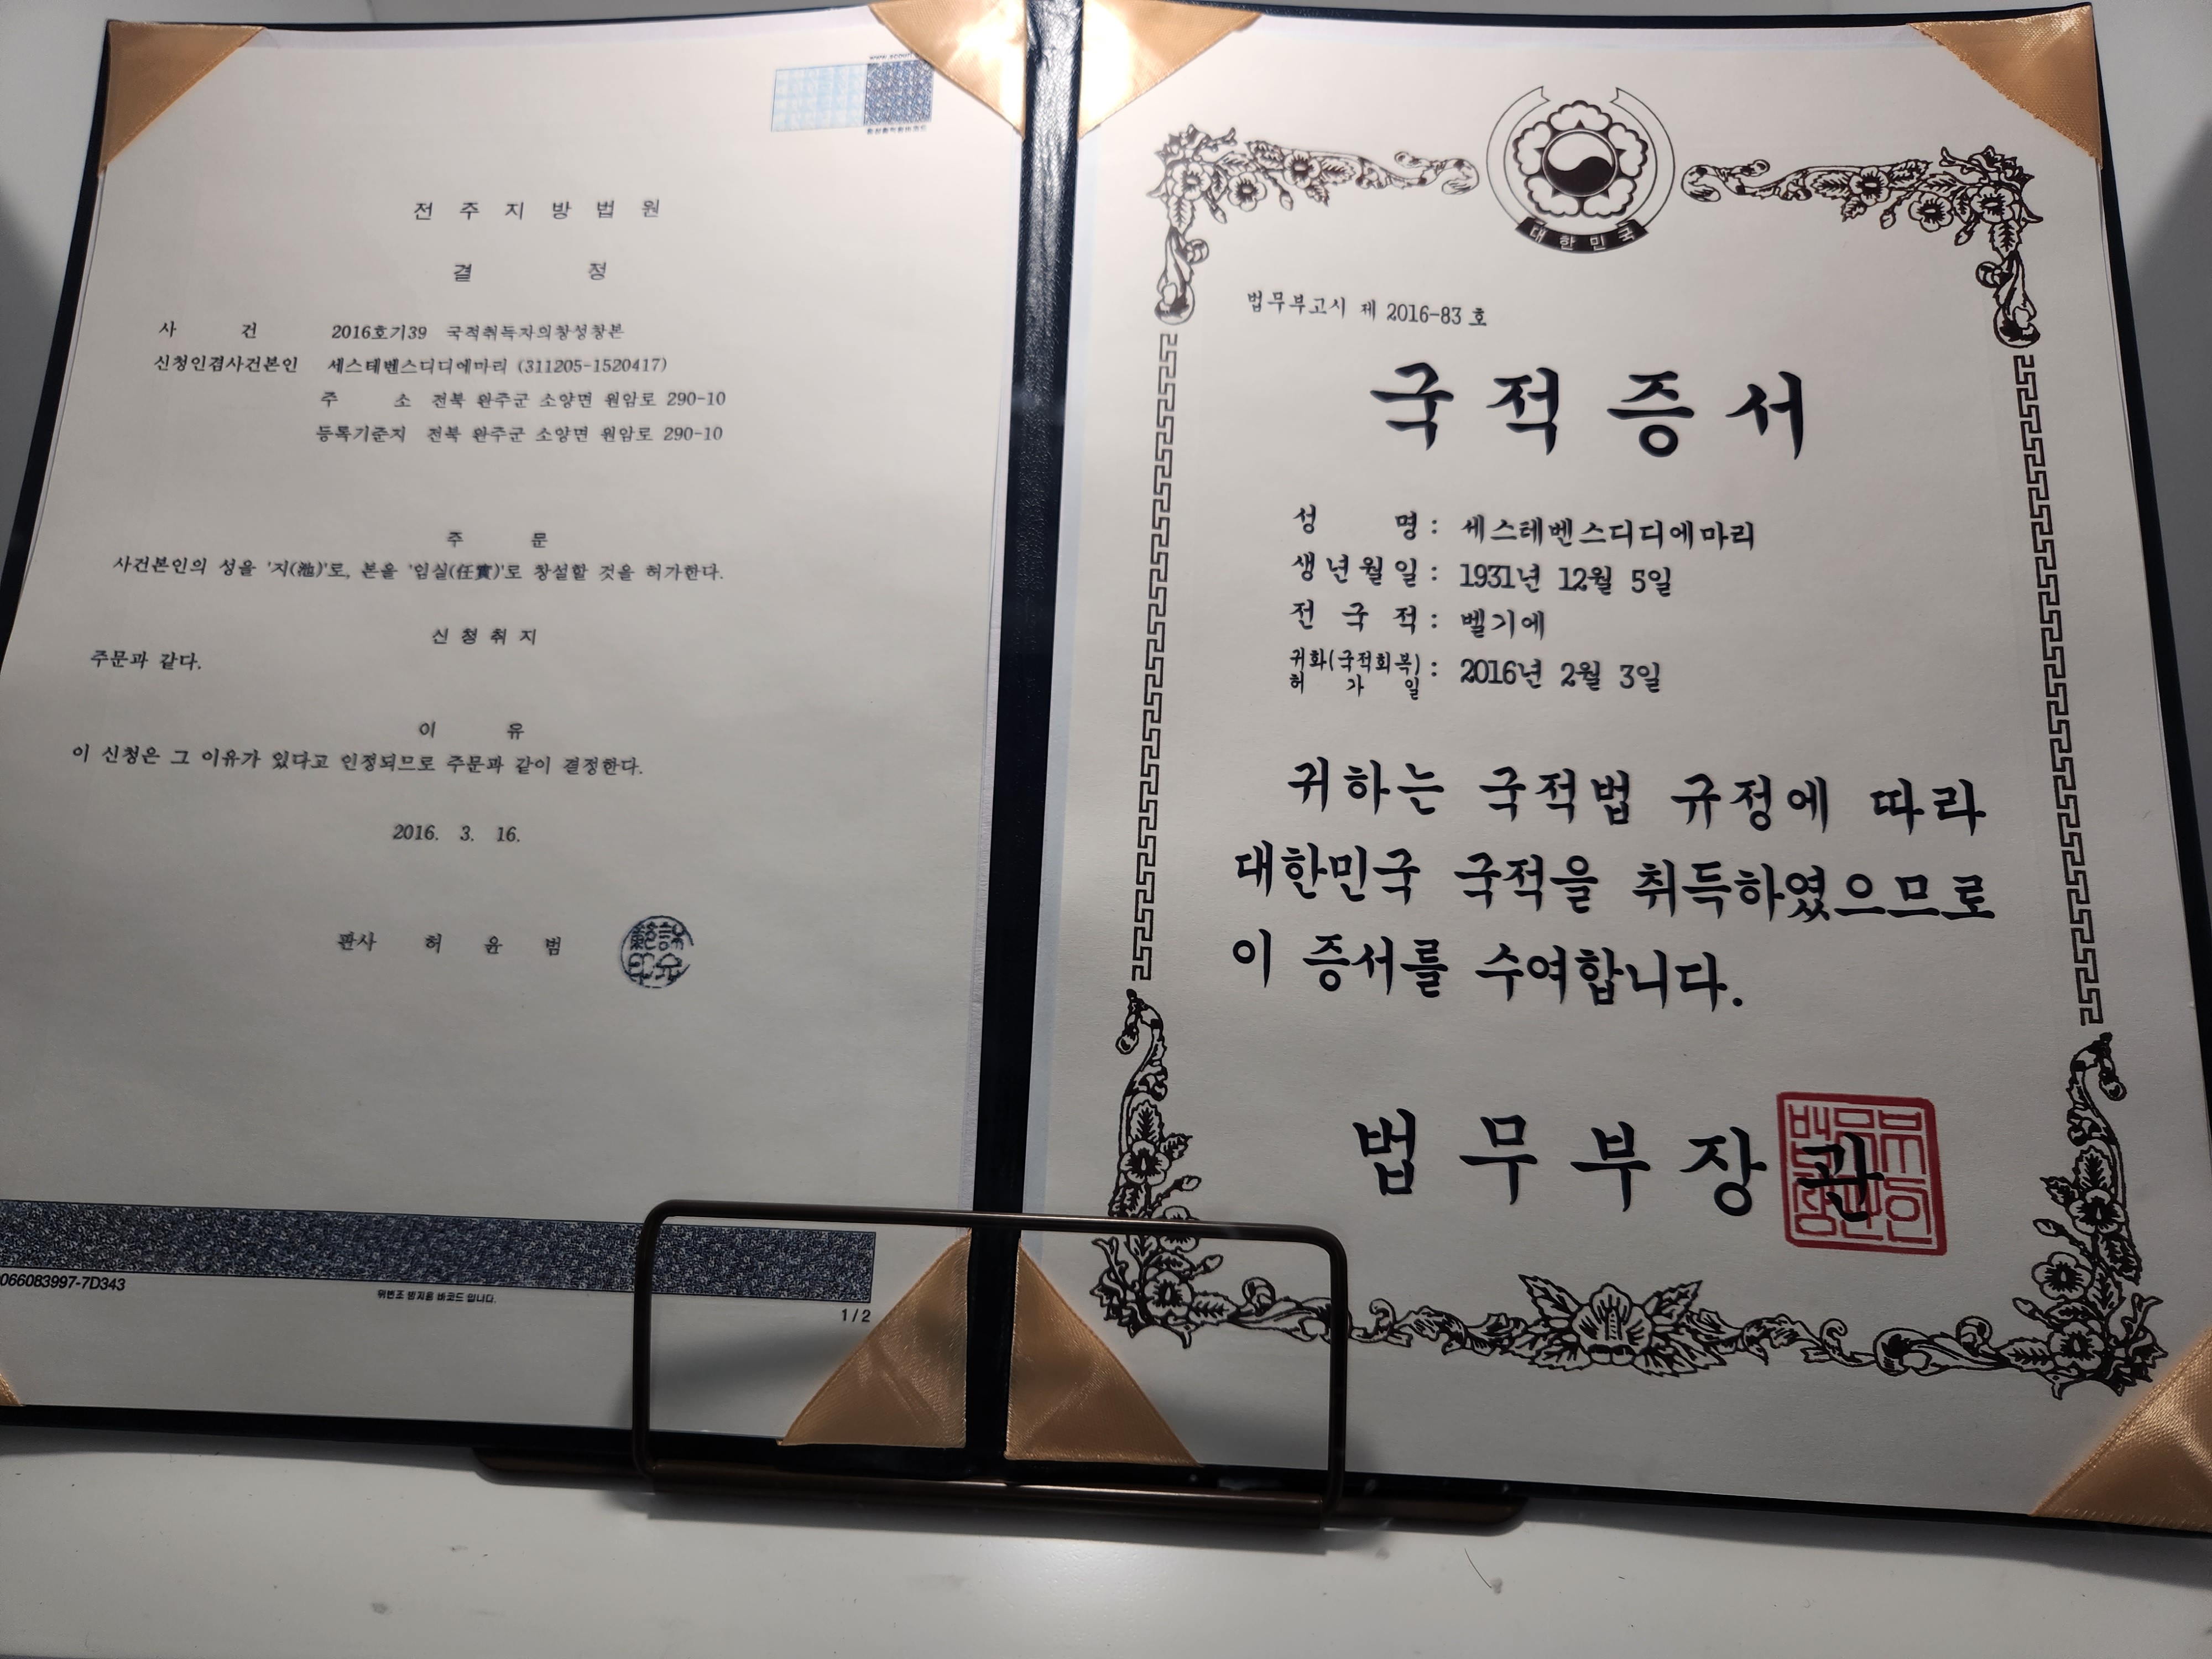 전 주 지 방 법 원
결 정
사 건 2016호기39 국적취득자의창성창본
신청인겸사건본인 세스테벤스디디에마리 (311205-1520417)
주 소 전북 완주군 소양면 원암로 290-10
등록기준지 전북 완주군 소양면 원암로 290-10
주 문
사건본인의 성을 '지(池)'로, 본을 '임실(任實)'로 창설할 것을 허가한다.
신 청 취 지
주문과 같다.
이 유
이 신청은 그 이유가 있다고 인정되므로 주문과 같이 결정한다.
2016. 3. 16.
판사 허 윤 범
066083997-7D343
위변조 방지용 바코드 입니다.
1 / 2
대한민국
법무부고시 제 2016-83 호
국 적 증 서
성 명 : 세스테벤스디디에마리
생 년 월 일 : 1931년 12월 5일
전 국 적 : 벨기에
귀화(국적회복) : 2016년 2월 3일
허 가 일
귀하는 국적법 규정에 따라
대한민국 국적을 취득하였으므로
이 증서를 수여합니다.
법 무 부 장 관